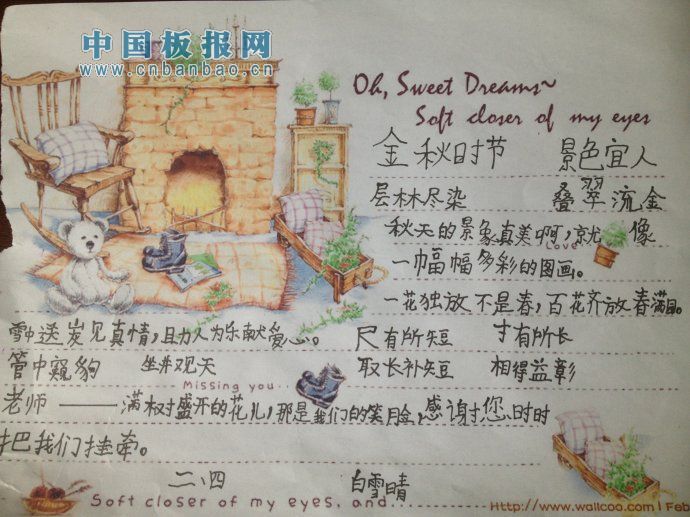 中国板报网
www.cnbanbao.cn
Oh, Sweet Dreams~
Soft closer of my eyes
金秋时节 景色宜人
层林尽染 叠翠流金
秋天的景象真美啊,就像
Love
一幅幅多彩的图画。
一花独放不是春,百花齐放春满园。
雪中送炭见真情,助人为乐献爱心。 尺有所短 寸有所长
管中窥豹 坐井观天 取长补短 相得益彰
Missing you...
老师——满树盛开的花儿,那是我们的笑脸,感谢您时时
把我们挂牵。
二、四 白雪晴
Soft closer of my eyes, and...
Http://www.wallcoo.com | Feb